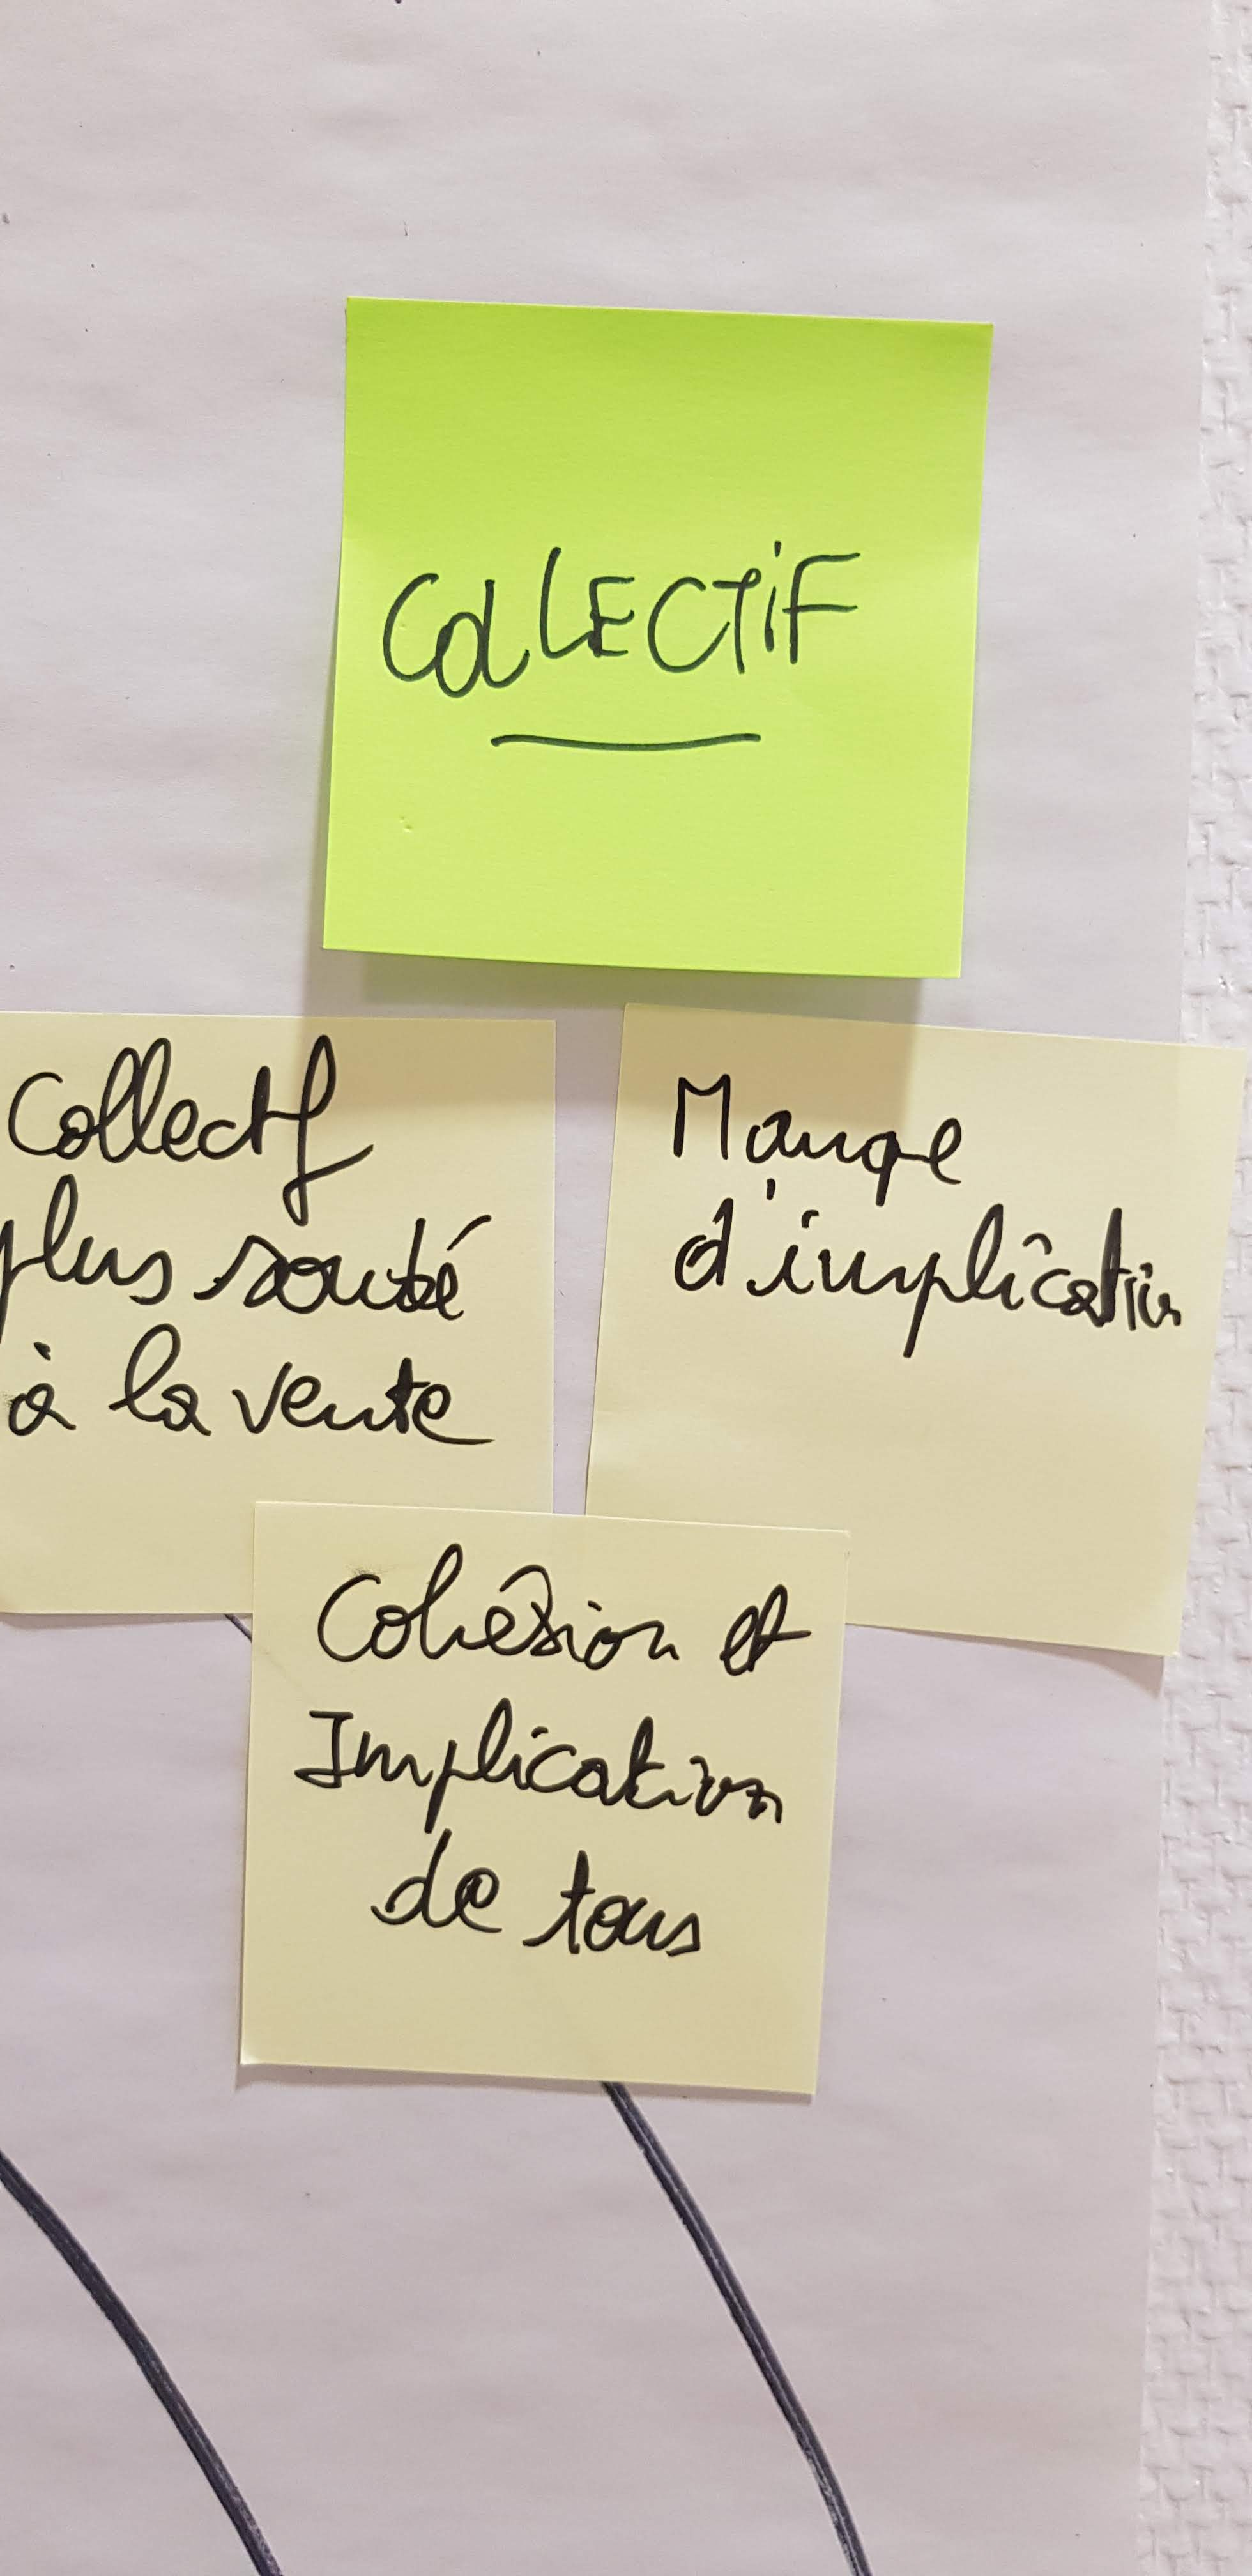 COLLECTIF
Collectif
plus soudé
à la vente
Manque
d'implication
Cohésion et
Implication
de tous